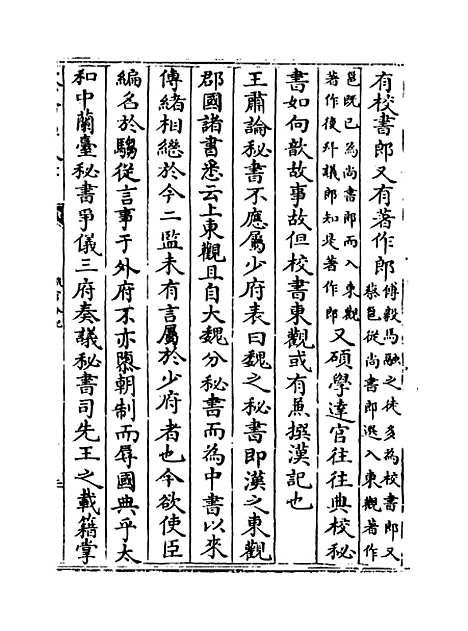 有校書郎又有著作郎傅毅馬融之徒多為校書郎又蔡邕從尚書郎選入東觀著作
邕既已為尚書郎而入東觀著作後外議郎知是著作郎又碩學達官往往典校秘
書如向歆故事故但校書東觀或有兼撰漢記也
王肅論秘書不應屬少府表曰魏之秘書即漢之東觀
郡國諸書悉云上東觀且自大魏分秘書而為中書以來
傳緒相繼於今二監未有言屬於少府者也今欲使臣
編名於騶從言事于外府不亦隳朝制而辱國典乎太
和中蘭臺秘書爭儀三府奏議秘書司先王之載籍掌